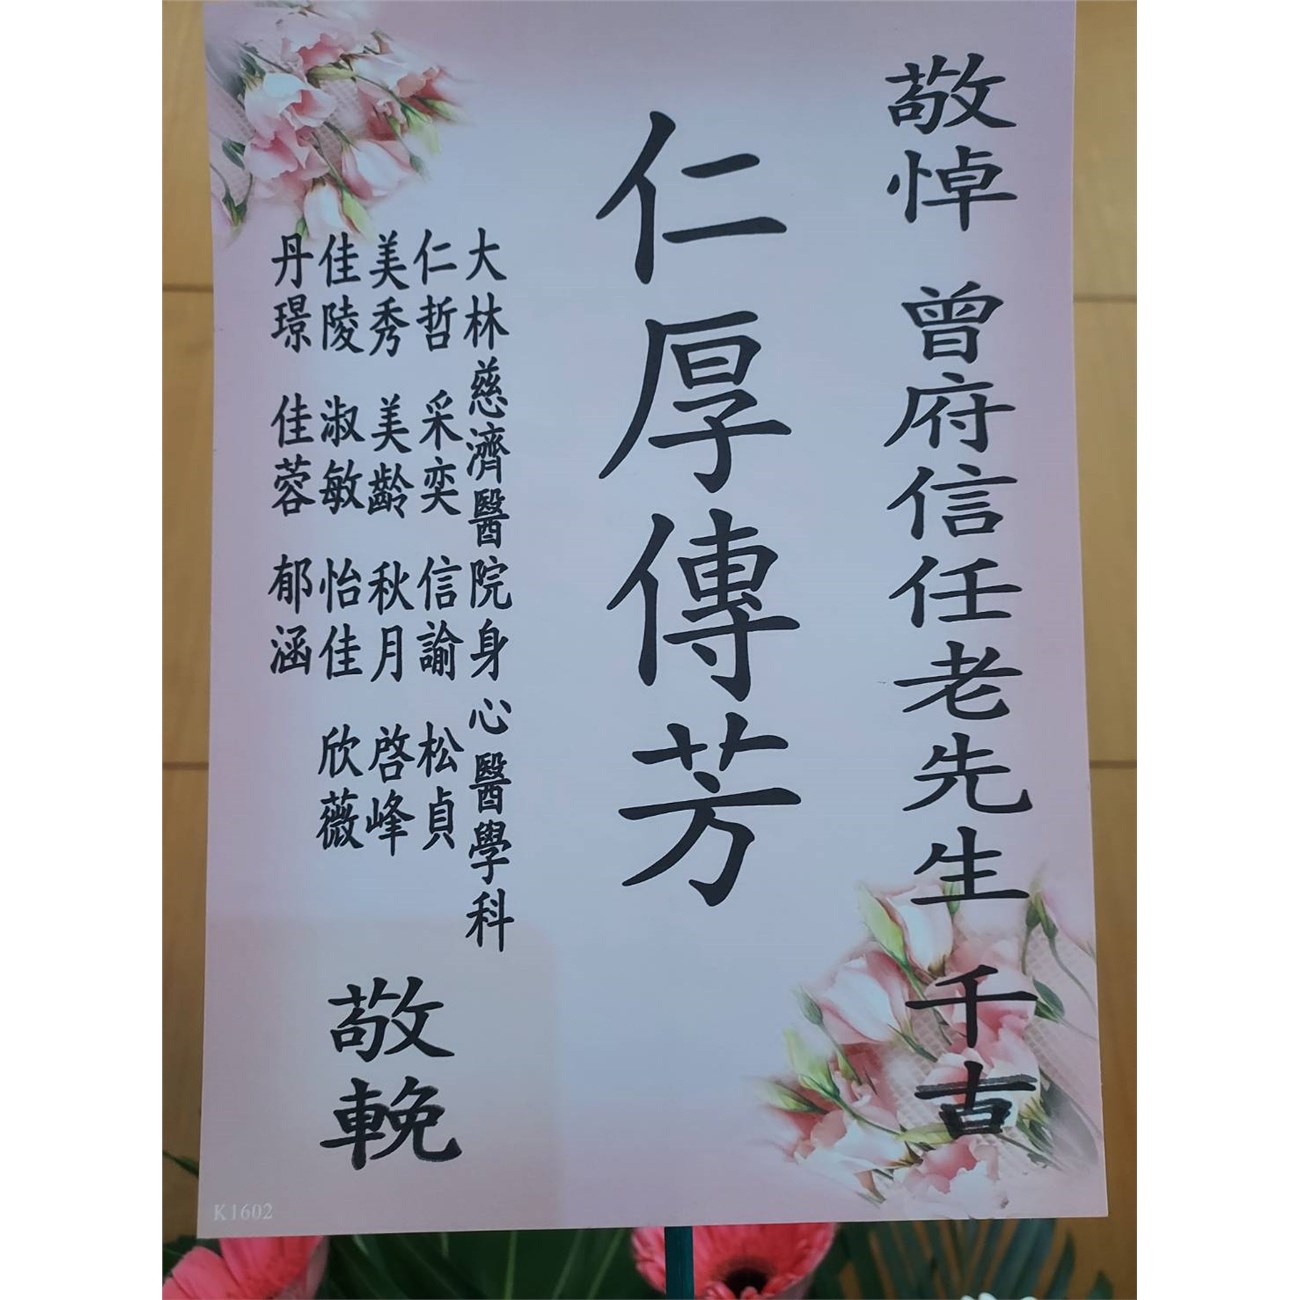 敬悼 曾府信任老先生 千古
仁厚傳芳
大林慈濟醫院身心醫學科
仁哲 采奕 信諭 松貞
美秀 美齡 秋月 啓峰
佳陵 淑敏 怡佳 欣薇
丹璟 佳蓉 郁涵
敬輓
K1602